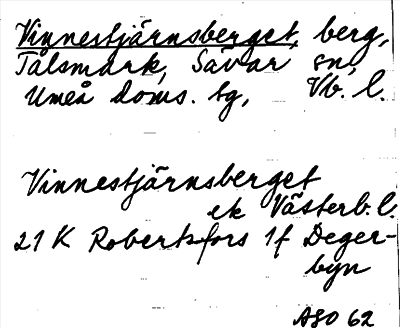 Vinnestjärnsberget, berg,
Tålsmark, Sävar sn,
Umeå doms. tg, Vb. l.
Vinnestjärnsberget
ek Västerb. l.
21 K Robertsfors 1f Deger-
byn
ASO 62